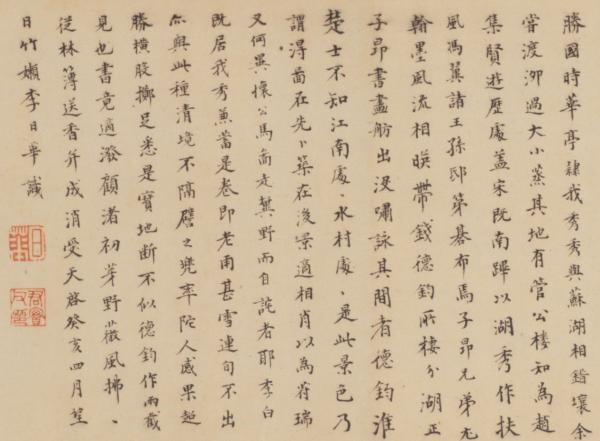 勝國時華亭隷我秀秀與蘇湖相錯壤余
嘗渡泖過大小蒸其地有管公樓知為趙
集賢遊歷處蓋宋既南蹕以湖秀作扶
風馮翼諸王孫邸第棊布焉子昂兄弟尤
翰墨風流相暎帶錢德鈞所棲分湖正
子昂書畫舫出没嘯詠其間者德鈞淮
楚士不知江南處、水村處、是此景色乃
謂得畫在先卜築在後景適相肖以為符瑞
又何異懷公馬畫走曠野而自詫者耶李白
既居我秀兼蓄是卷即老甫甚雪連旬不出
亦與此種清境不隔礕之兜率陀人感果超
勝橫股擲足悉是寶地斷不似德鈞作兩截
見也書竟適潑顧渚初芽野薇風拂、
從林薄送香并成消受天啓癸亥四月望
日竹嬾李日華識
日華